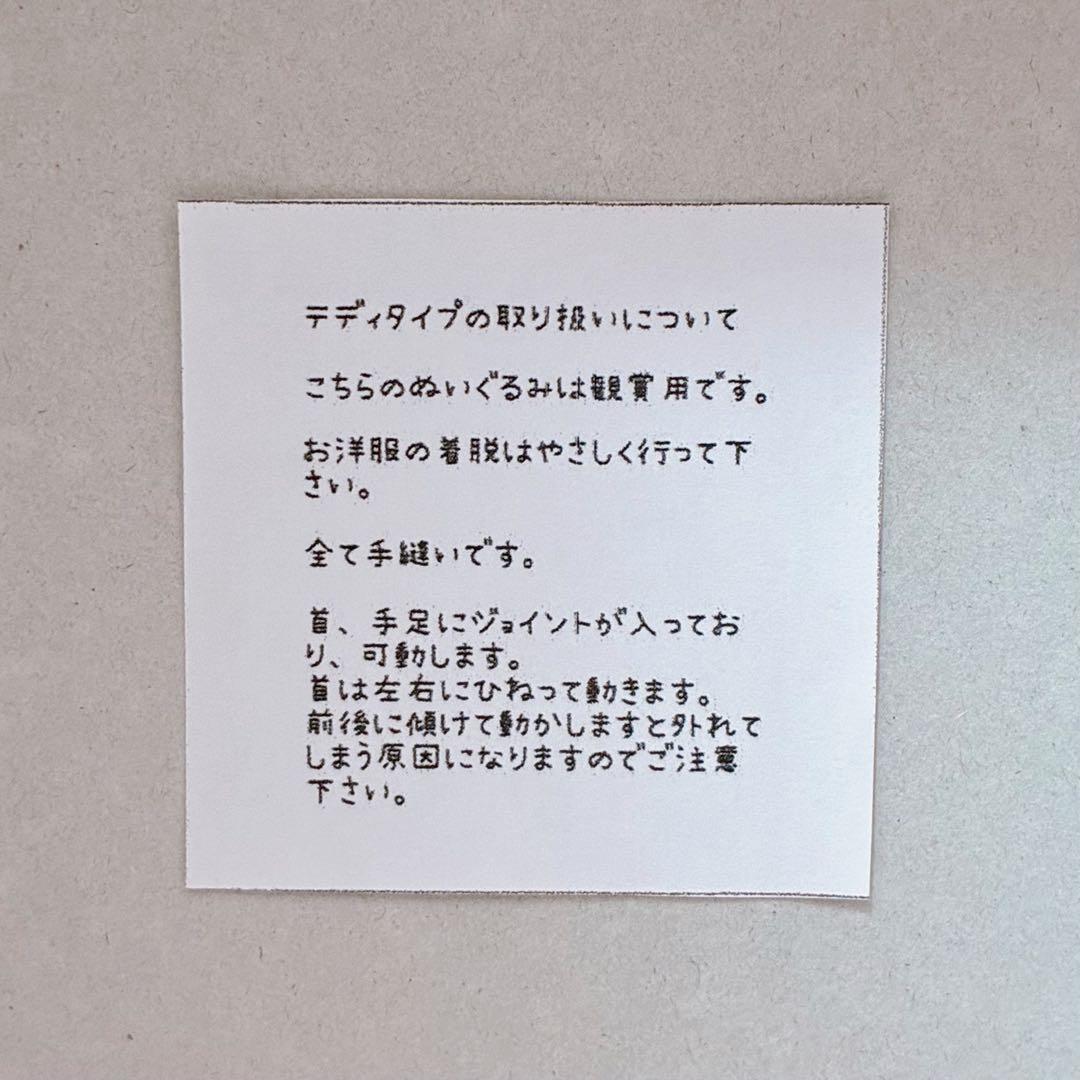 テディタイプの取り扱いについて
こちらのぬいぐるみは観賞用です。
お洋服の着脱はやさしく行って下
さい。
全て手縫いです。
首、手足にジョイントが入ってお
り、可動します。
首は左右にひねって動きます。
前後に傾けて動かしますと外れて
しまう原因になりますのでご注意
下さい。